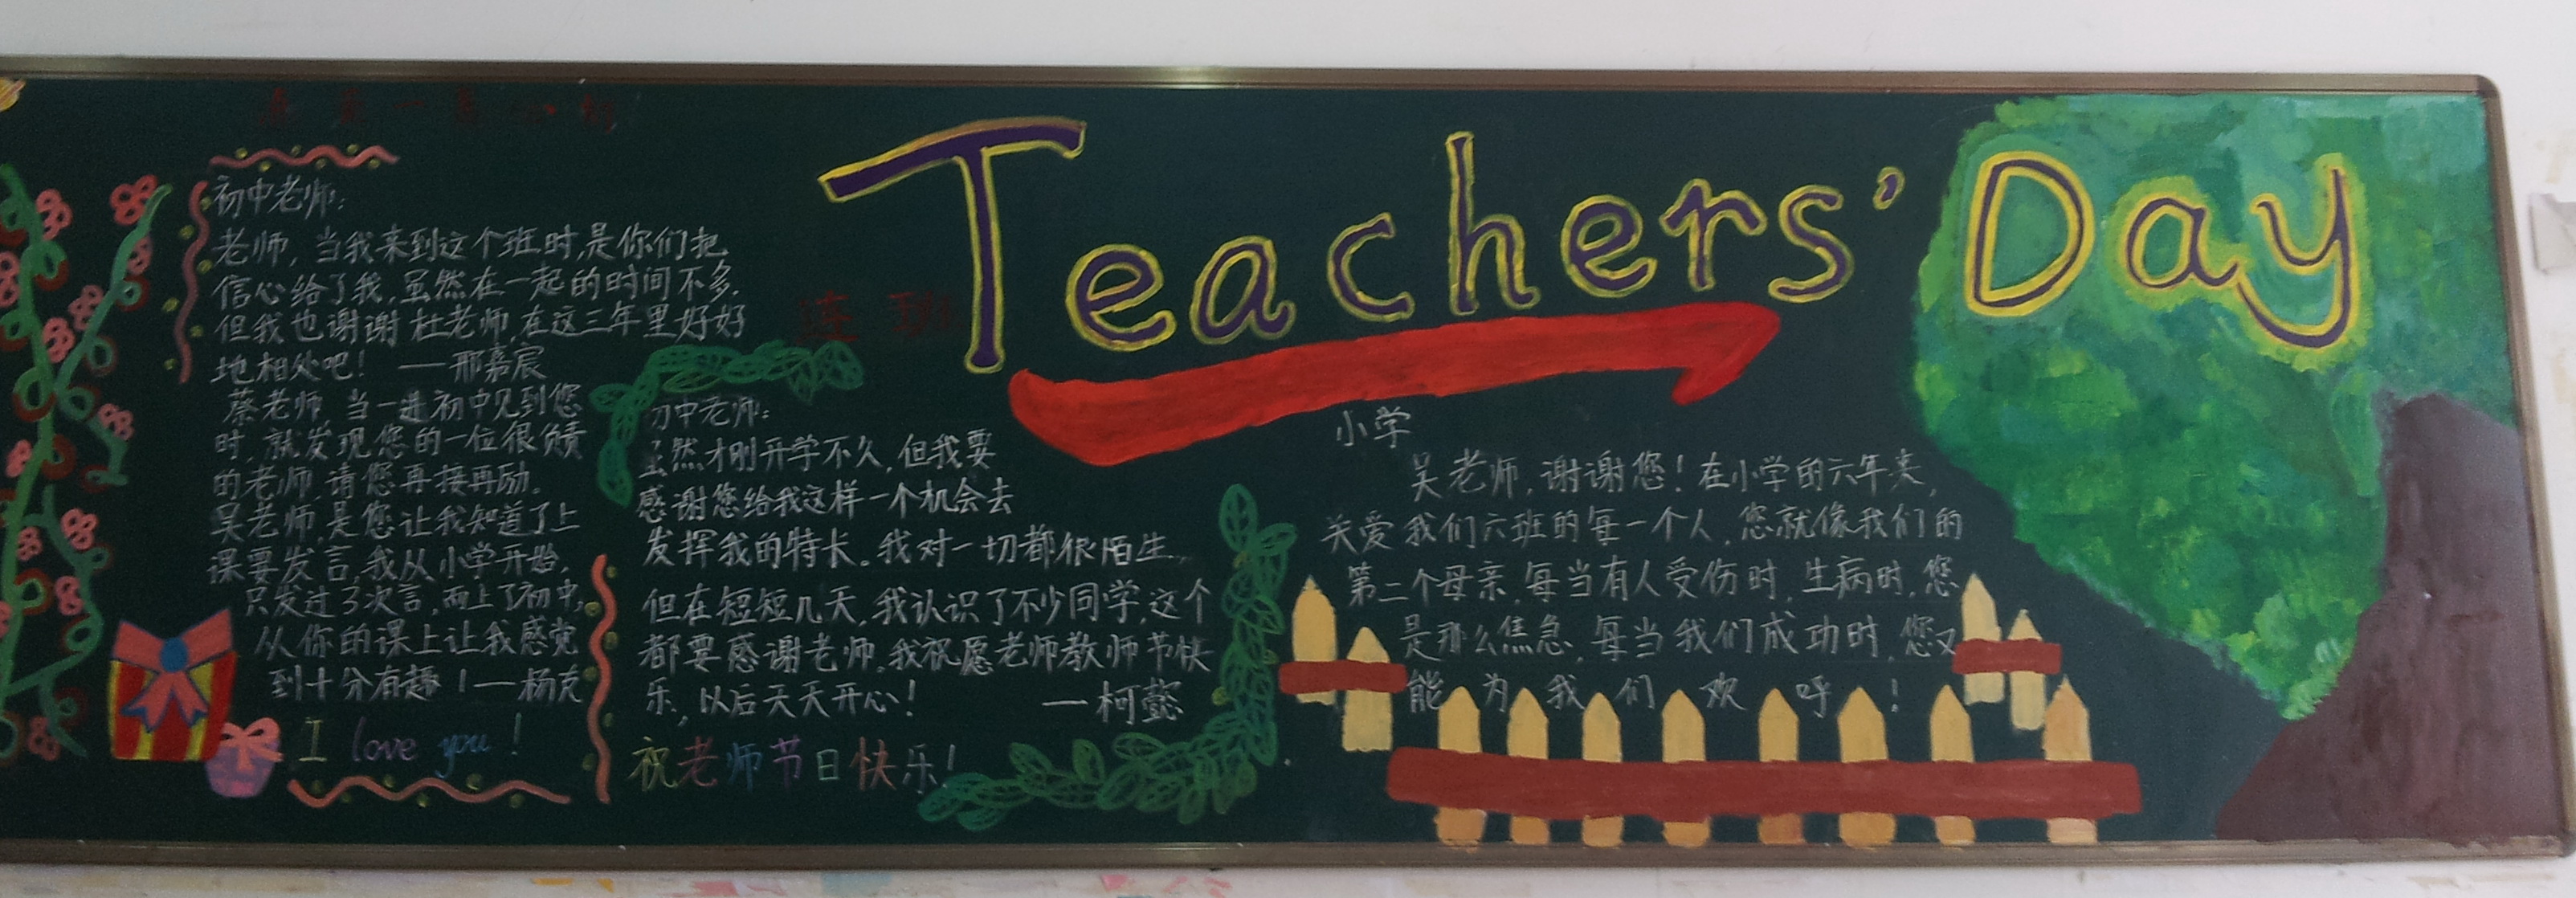 Teachers' Day
初中老师:
老师, 当我来到这个班时,是你们把
信心给了我,虽然在一起的时间不多.
但我也谢谢杜老师,在这三年里好好
地相处吧! ——邢嘉宸
蔡老师,当一进初中见到您
时,就发现您的一位很负责
的老师,请您再接再励.
吴老师,是您让我知道了上
课要发言,我从小学开始,
只发过3次言,而上了初中,
从你的课上让我感觉
到十分有趣!——杨克
I love you!
初中老师:
虽然才刚开学不久,但我要
感谢您给我这样一个机会去
发挥我的特长。我对一切都很陌生
但在短短几天,我认识了不少同学,这个
都要感谢老师,我祝愿老师教师节快
乐,以后天天开心! ——柯懿
祝老师节日快乐!
小学
吴老师,谢谢您!在小学的六年来,
关爱我们六班的每一个人,您就像我们的
第二个母亲,每当有人受伤时,生病时,您
是那么焦急,每当我们成功时,您又
能为我们欢呼!